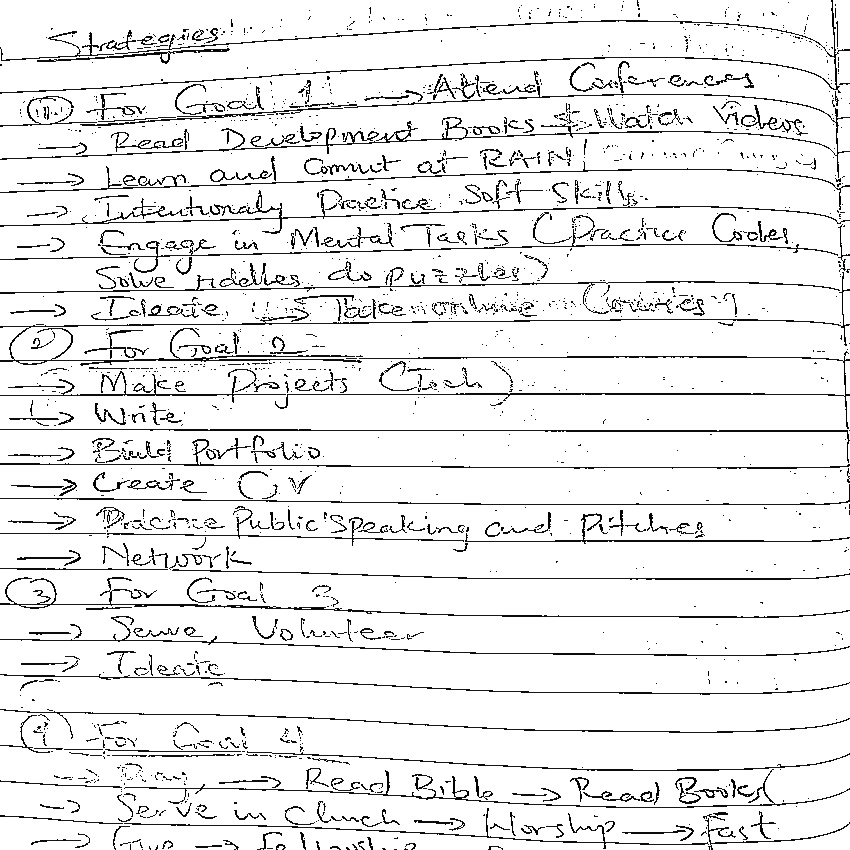 Strategies
(1) For Goal 1 → Attend Conferences
→ Read Development Books & Watch Videos
→ Learn and Commit at RAIN
→ Intentionaly Practice Soft Skills.
→ Engage in Mental Tasks (Practice Codes,
Solve riddles, do puzzles)
→ Ideate, → Take online Courses
(2) For Goal 2
→ Make Projects (Tech)
→ Write
→ Build Portfolio
→ Create CV
→ Practice Public Speaking and Pitches
→ Network
(3) For Goal 3
→ Serve, Volunteer
→ Ideate
(4) For Goal 4
→ Pray, → Read Bible → Read Books(
→ Serve in Church → Worship → Fast
→ Give → Fellowship